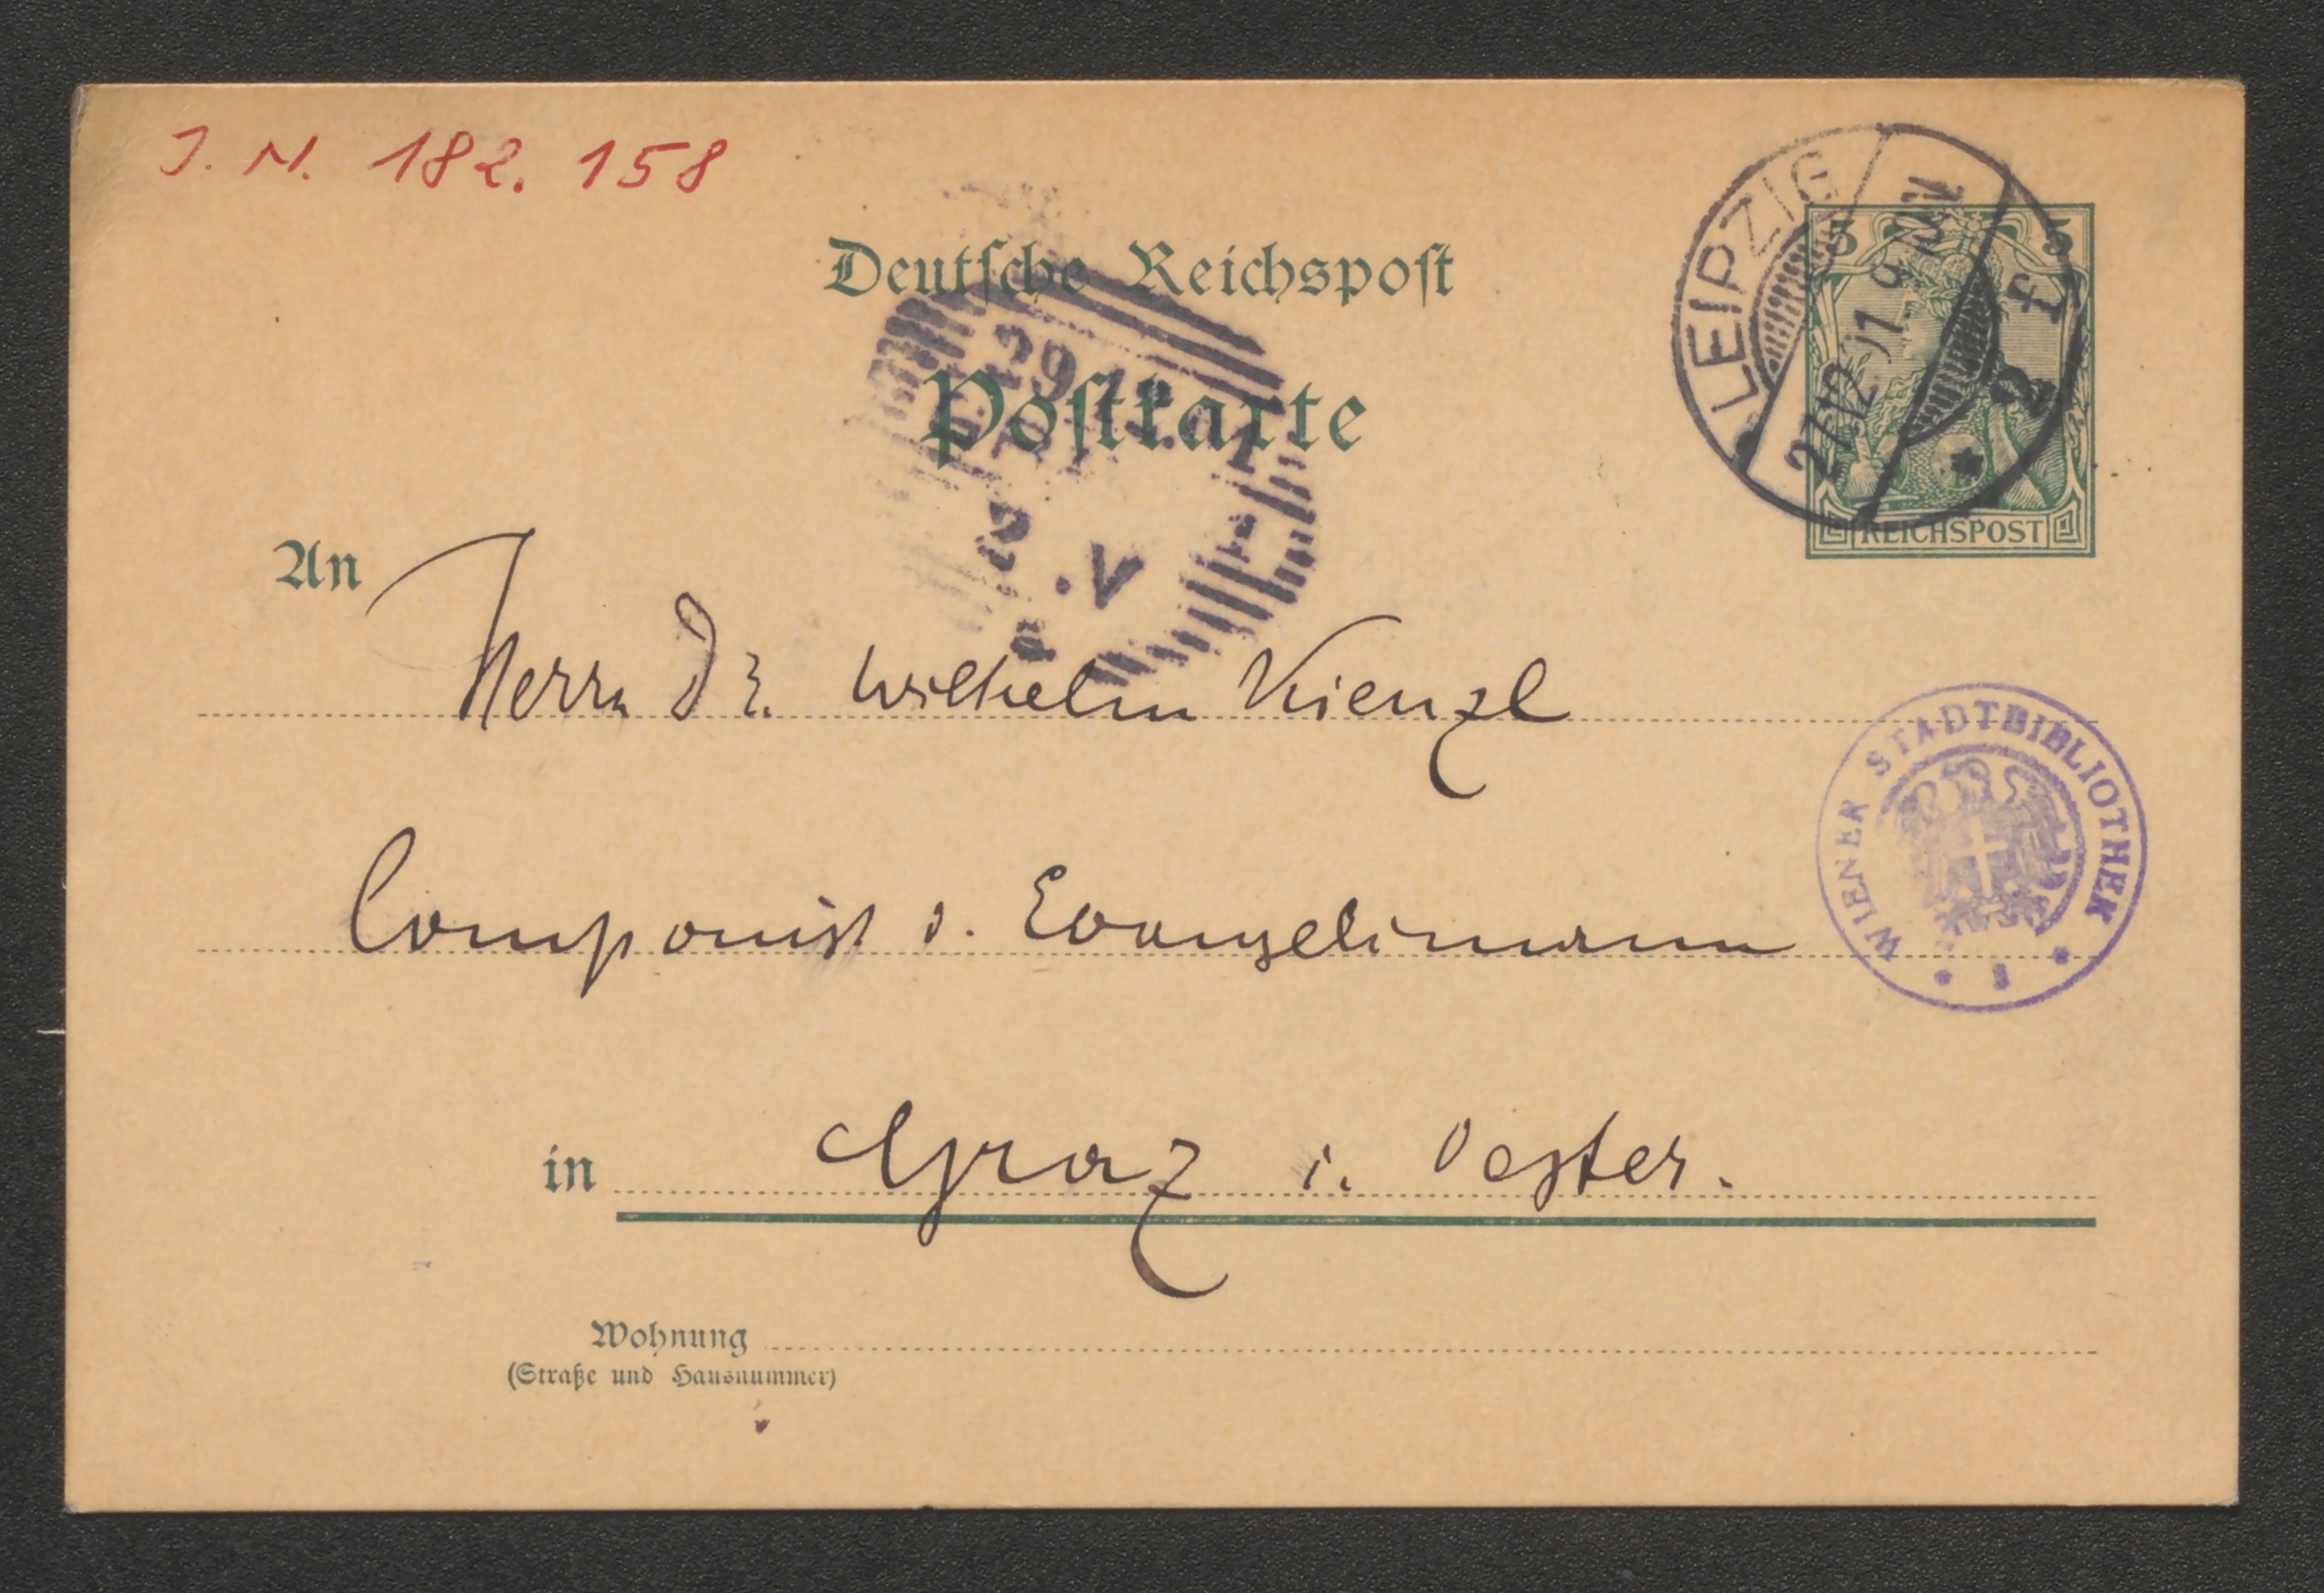 J. N. 182. 158
Deutsche Reichspost
Postkarte
LEIPZIG
27.12.11. 9-
2 f
5 5
REICHSPOST
29.12
.V
An Herrn Dr. Wilhelm Kienzl
Componist d. Evangelimann
WIENER STADTBIBLIOTHEK
in Graz i. Oester.
Wohnung
(Straße und Hausnummer)